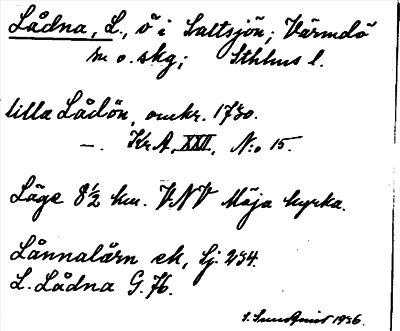 Lådna, L., ö i Saltsjön; Värmdö
m o. skg; Sthlms l.
lilla Lådön, omkr. 1730.
—. Kr.A. XXII, N:o 15.
Läge 8½ km. VNV Möja kyrka.
Lännalärn ek, Lj. 234.
L. Lådna G. 76.
S. Sundqvist 1936.